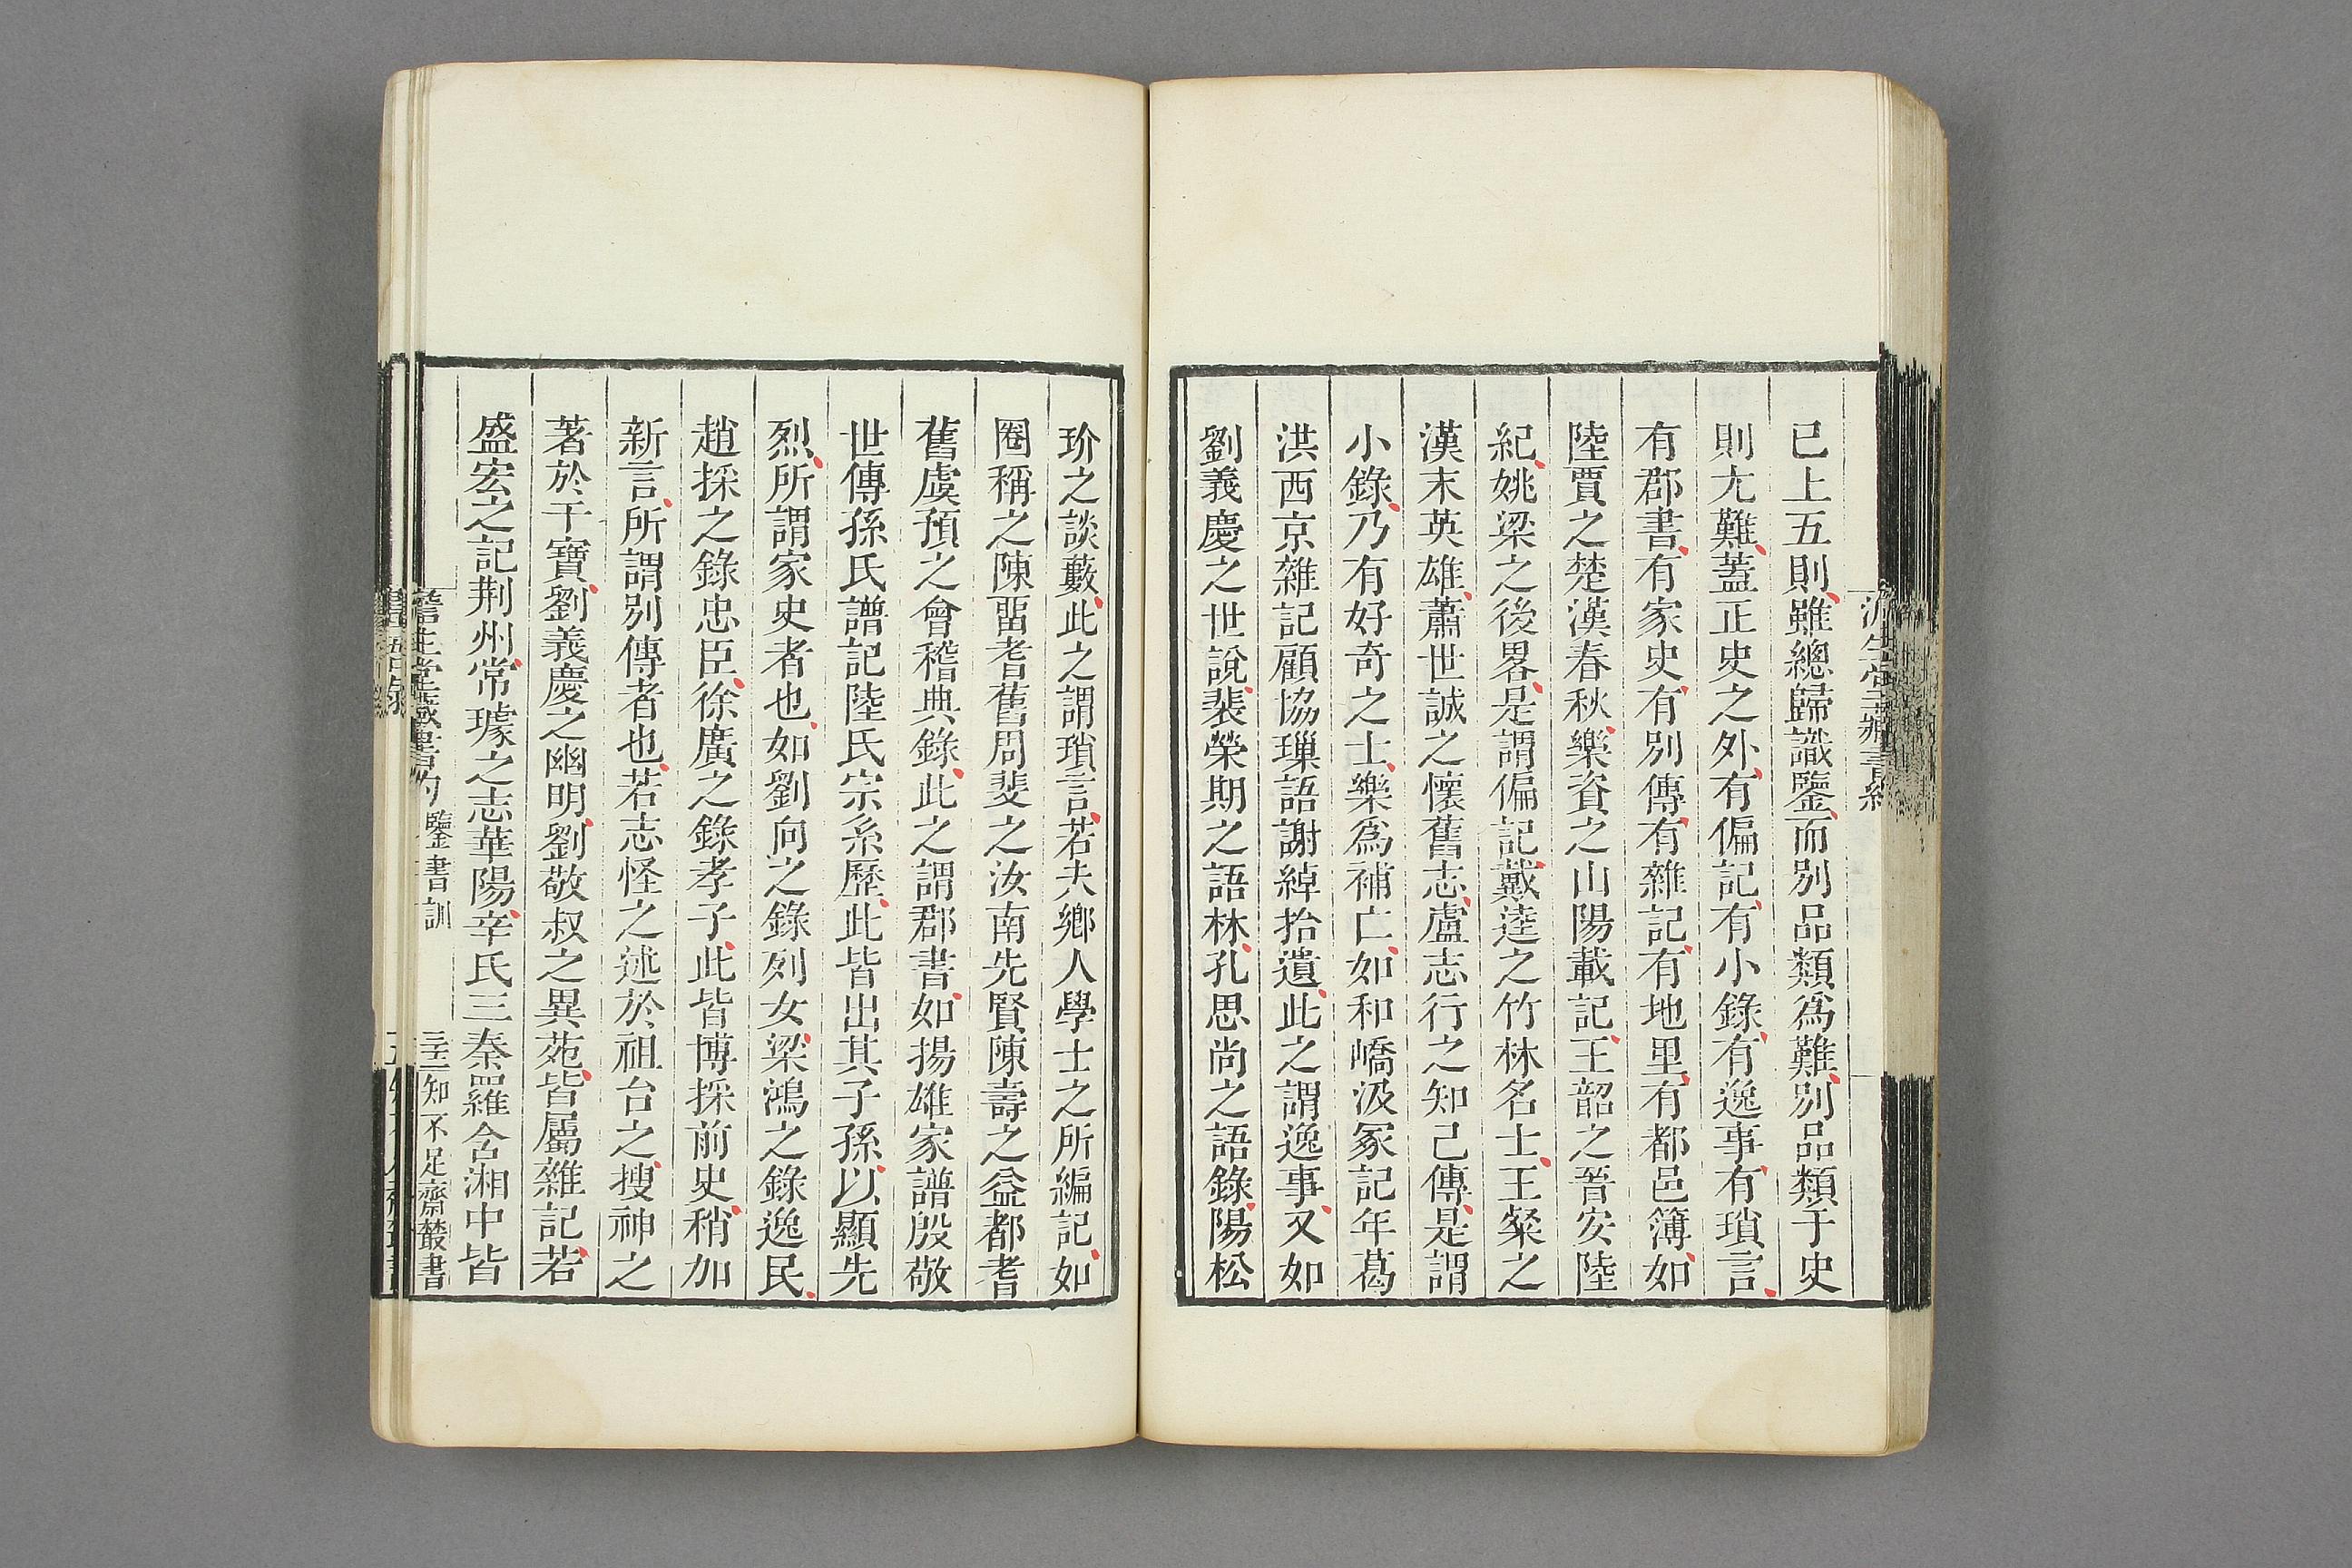 已上五則雖總歸識鑒而別品類爲難別品類于史
則尤難蓋正史之外有偏記有小錄有逸事有瑣言
有郡書有家史有別傳有雜記有地里有都邑簿如
陸賈之楚漢春秋樂資之山陽載記王韶之晉安陸
紀姚梁之後畧是謂偏記戴逵之竹林名士王粲之
漢末英雄蕭世誠之懷舊志盧志行之知己傳是謂
小錄乃有好奇之士樂爲補亡如和嶠汲冢記年葛
洪西京雜記顧協瑣語謝綽拾遺此之謂逸事又如
劉義慶之世說裴榮期之語林孔思尚之語錄陽松
玠之談藪此之謂瑣言若夫鄉人學士之所編記如
圈稱之陳畱耆舊周斐之汝南先賢陳壽之益都耆
舊虞預之會稽典錄此之謂郡書如揚雄家譜殷敬
世傳孫氏譜記陸氏宗系歷此皆出其子孫以顯先
烈所謂家史者也如劉向之錄列女梁鴻之錄逸民
趙採之錄忠臣徐廣之錄孝子此皆博採前史稍加
新言所謂別傳者也若志怪之述於祖台之搜神之
著於干寶劉義慶之幽明劉敬叔之異苑皆屬雜記若
盛宏之記荆州常璩之志華陽辛氏三秦羅含湘中皆
澹生堂藏書約 鑒書訓 知不足齋叢書